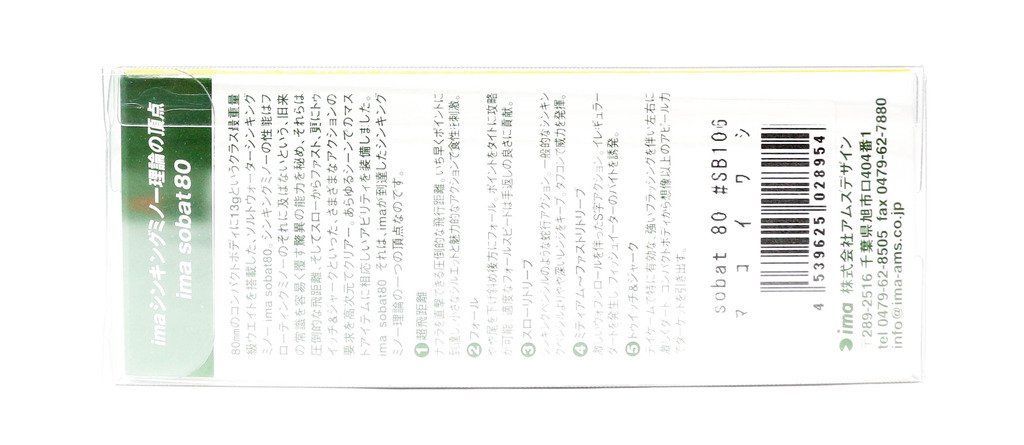 ima シンキングミノー理論の頂点
ima sobat80
80mmのコンパクトボディに13gというクラス超重量
級ウエイトを搭載した、ソルトウォーターシンキング
ミノー ima sobat80。シンキングミノーの性能はフ
ローティングミノーのそれに及ばないという、旧来
の常識を容易く覆す驚異の能力を秘め、それらは
圧倒的な飛距離、そしてスローからファスト、更にトゥ
イッチ&ジャークといった、さまざまなアクションの
要求を高次元でクリアー。あらゆるシーンでのマス
トアイテムに相応しいアビリティを装備しました。
ima sobat80 それは、imaが到達したシンキング
ミノー理論の一つの頂点なのです。
❶超飛距離
ナブラを直撃できる圧倒的な飛行距離。いち早くポイントに
到達し、小さなシルエットと魅力的なアクションで食性を刺激。
❷フォール
やや尾を下げ斜め後方にフォール。ポイントをタイトに攻略
が可能。適度なフォールスピードは手返しの良さに貢献。
❸スローリトリーブ
シンキングペンシルのような蛇行アクション。一般的なシンキン
グペンシルよりやや深いレンジをキープ。タダコンで威力を発揮。
❹ファストリトリーブ
激しいウォブンロールを伴ったS字アクション。イレギュラー
ダートを発生し、フィッシュイーターのバイトを誘発。
❺トゥイッチ&ジャーク
デイゲームで特に有効な、強いフラッシングを伴い左右に
激しくダート コンパクトボディから想像以上のアピール力
でターゲットを引き出す。
sobat 80 #SB106
マコイワシ
4 539625 028954
ima 株式会社アムズデザイン
〒289-2516 千葉県旭市ロ404番1
tel 0479-62-8505 fax 0479-62-7880
info@ima-ams.co.jp